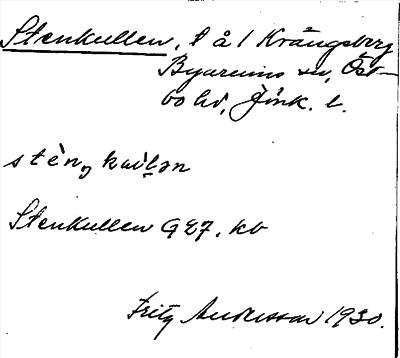 Stenkullen, t å 1 Krängsberg
Byarums sn, Öst-
bo hd, Jönk. l.
stèn,
Stenkullen GEF, kb
Fritz Andersson 1930.